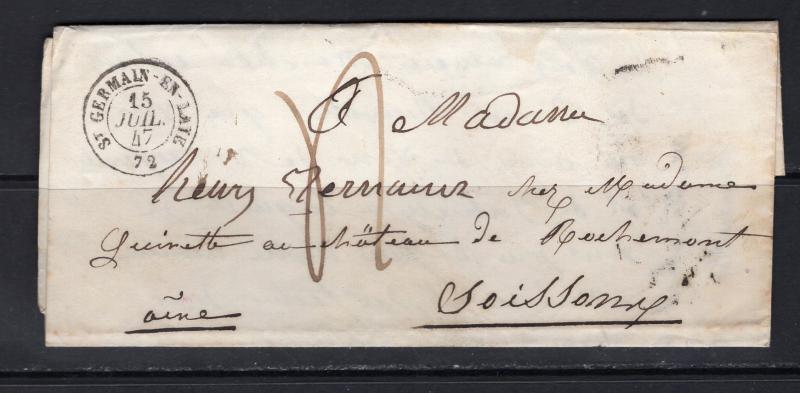 ST GERMAIN-EN-LAYE
15
JUIL.
47
72
4
A Madame
henry chez Madame
Quinette au château de Rochemont
Soissons
aîne